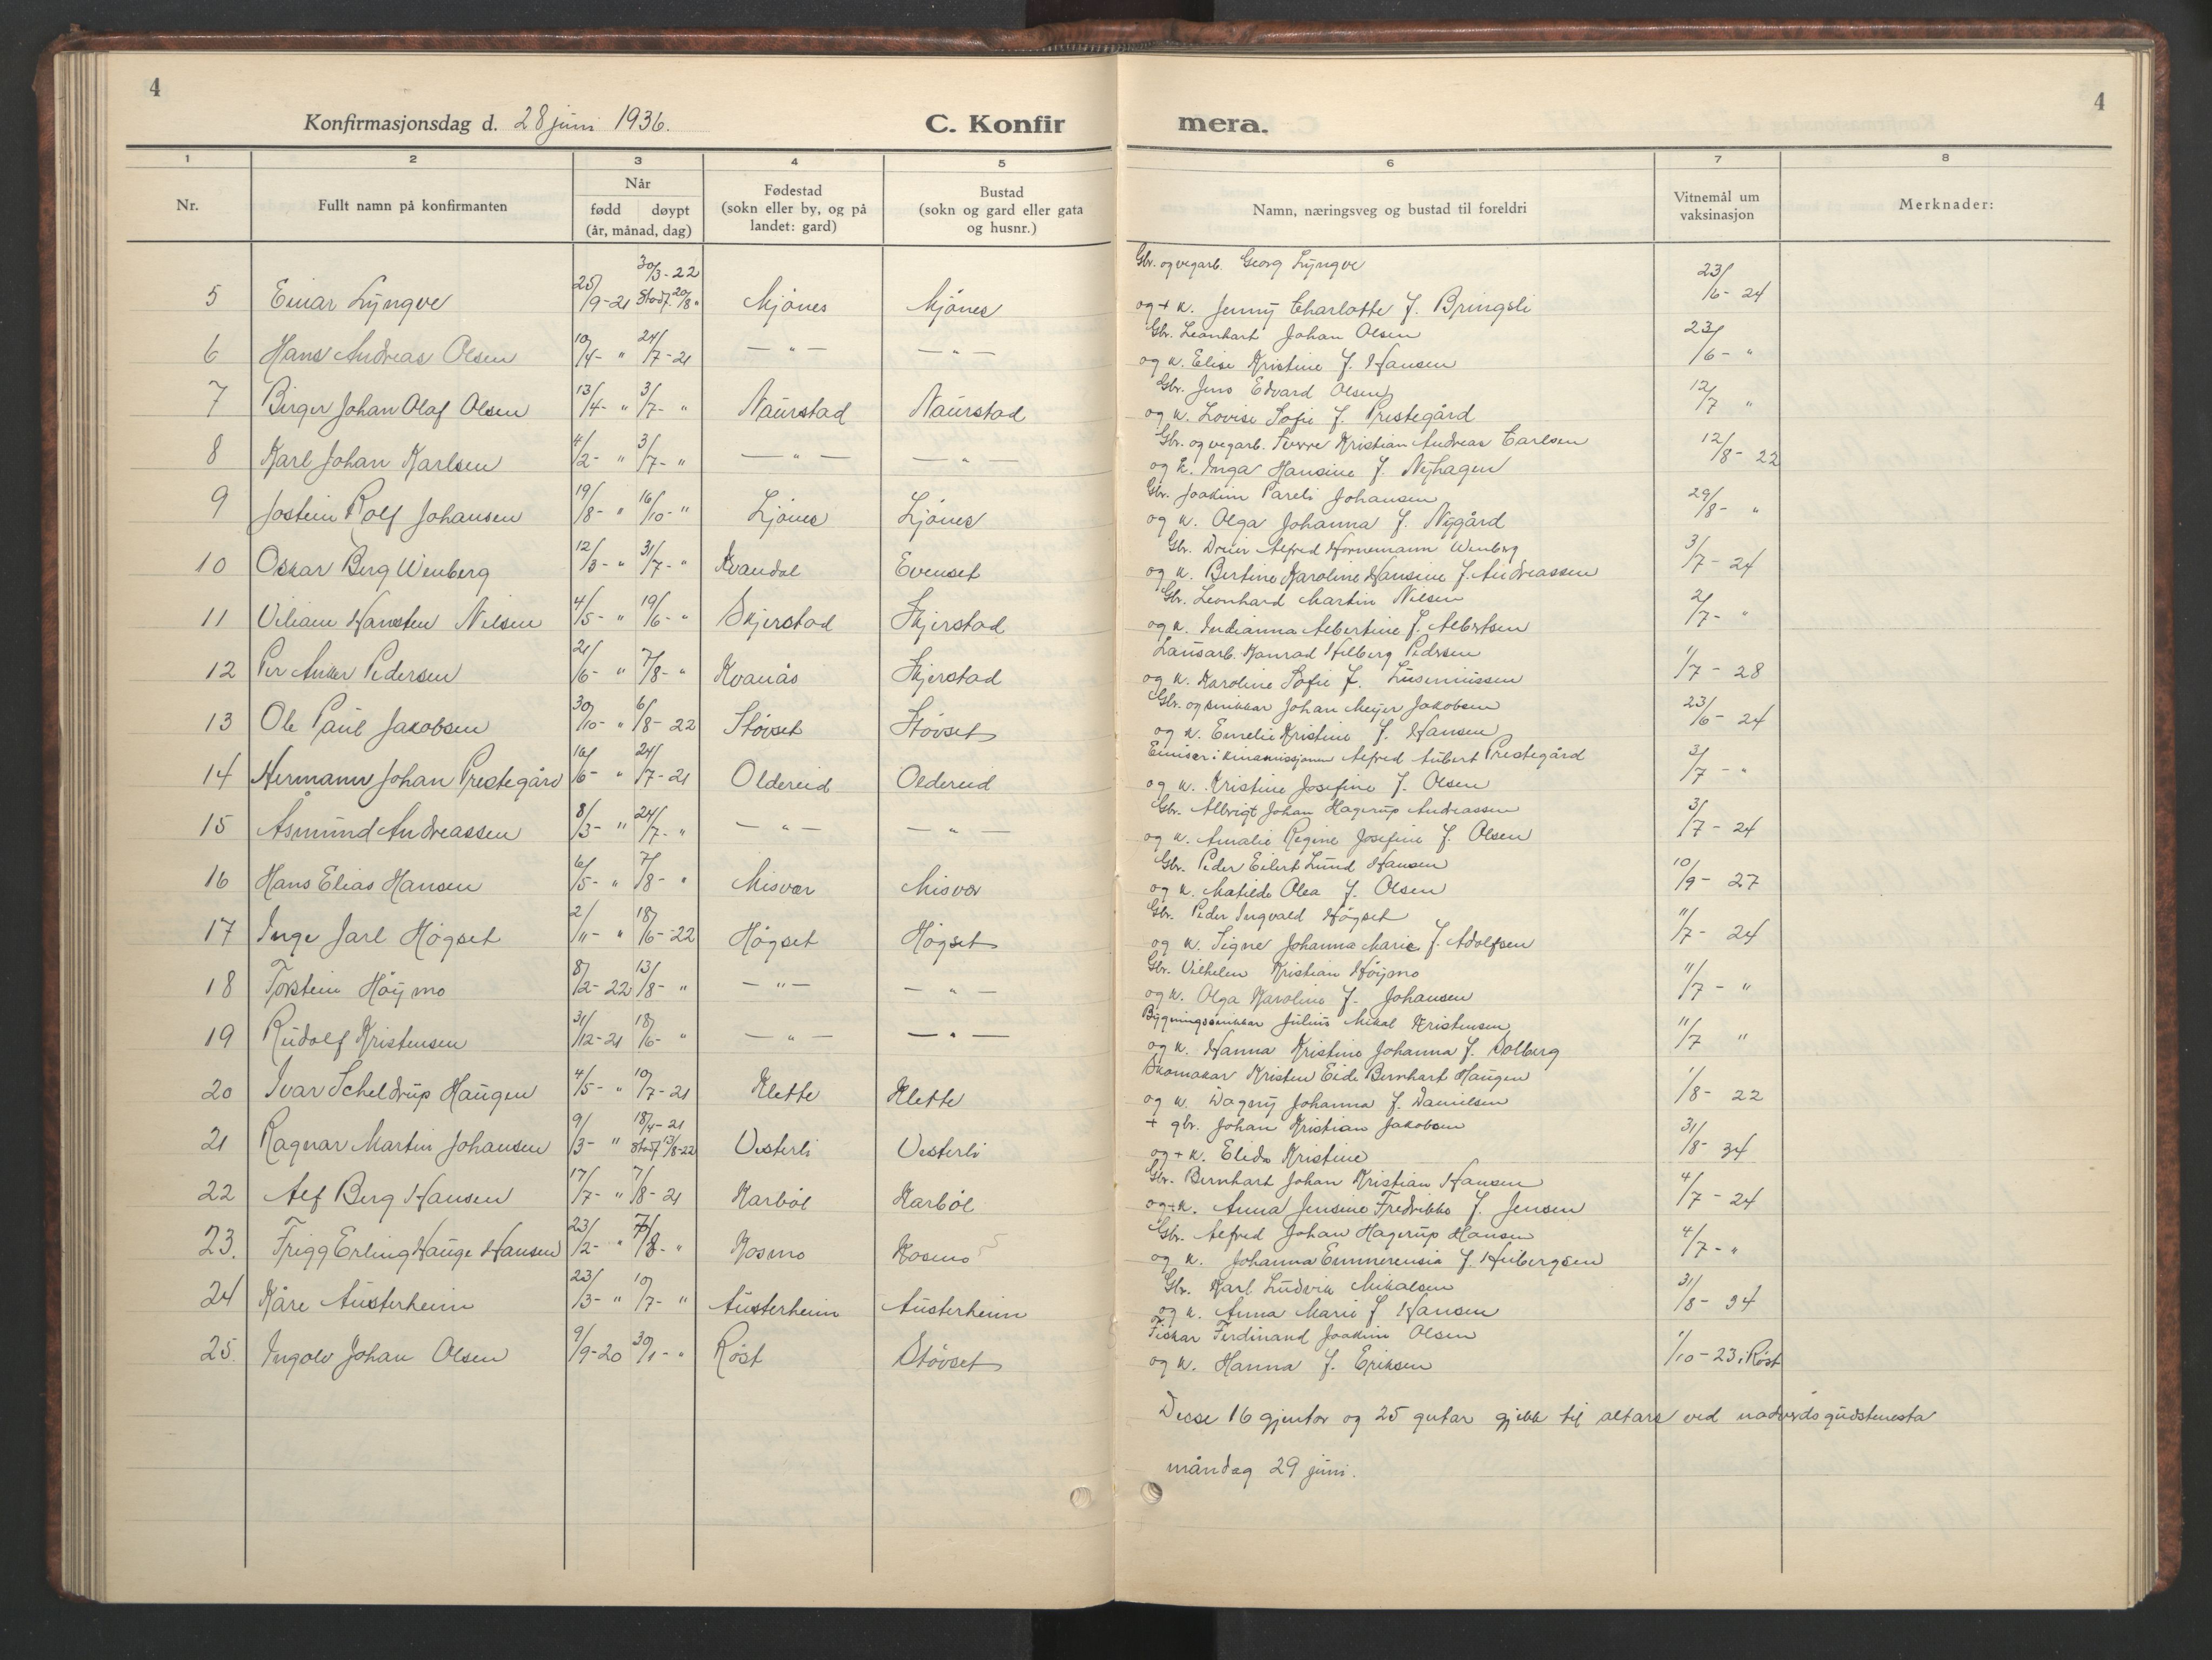 4
Konfirmasjonsdag d. 28 juni 1936.
C. Konfir
mera.
4
1 2 3 4 5 6 7 8
Nr.
Fullt namn på konfirmanten
Når
fødd døypt
(år, månad, dag)
Fødestad
(sokn eller by, og på
landet: gard)
Bustad
(sokn og gard eller gata
og husnr.)
Namn, næringsveg og bustad til foreldri
Vitnemål um
vaksinasjon
Merknader:
Gbr. og vegarb. Georg Lyngve
5 Einar Lyngve 25/9-21 30/3-22 Stadf. 20/8 " Mjönes Mjönes og + k. Jenny Charlotte f. Bringsli 23/6-24
Gbr. Leonhart Johan Olsen
6 Hans Andreas Olsen 10/4- " 24/7-21 — " — — " — og k. Elise Kristine f. Hansen 23/6- "
Gbr. Jens Edvard Olsen
7 Birger Johan Olaf Olsen 13/4- " 3/7- " Naurstad Naurstad og k. Lovise Sofie f. Prestegård 12/7 "
Gbr. og vegarb. Kristian Andreas Carlsen
8 Karl Johan Karlsen 4/2- " 3/7- " — " — — " — og k. Inga Hansine f. Nyhagen 12/8-22
Gbr. Joakim Pareli Johansen
9 Jostein Rolf Johansen 19/8- " 16/10- " Ljönes Ljönes og k. Olga Johanna f. Nygård 29/8- "
Gbr. Dreier Alfred Hornemann Wenberg
10 Oskar Berg Wenberg 12/3- " 31/7- " Kvandal Evenset og k. Bertine Karoline Hansine f. Andreassen 3/7-24
Gbr. Leonhard Martin Nilsen
11 Viliam Hansten Nilsen 4/5- " 19/6- " Skjerstad Skjerstad og k. Indianna Albertine f. Albertsen 2/7- "
Lausarb. Konrad Hilberg Pedersen
12 Per Anker Pedersen 21/6- " 7/8- " Kvanås Skjerstad og k. Karoline Sofie f. 1/7-28
Gbr. og snikkar Johan Meyer Jakobsen
13 Ole Paul Jakobsen 30/10- " 6/8-22 Stövset Stövset og k. Emelie Kristine f. Hansen 23/6-24
Emisær i kinamissjonen Alfred Aubert Prestegård
14 Hermann Johan Prestegård 16/6- " 24/7-21 Oldereid Oldereid og k. Kristine Josefine f. Olsen 3/7- "
Gbr. Albrigt Johan Hagerup Andreassen
15 Åsmund Andreassen 8/3- " 24/7- " — " — — " — og k. Amalie Regine Josefine f. Olsen 3/7-24
Gbr. Peder Eilert Lund Hansen
16 Hans Elias Hansen 6/5- " 7/8- " Misvær Misvær og k. Matilde Olea f. Olsen 10/9-27
Gbr. Peder Ingvald Högset
17 Inge Jarl Högset 2/11- " 18/6-22 Högset Högset og k. Signe Johanna Marie f. Adolfsen 11/7-24
Gbr. Vilhelm Kristian Höymo
18 Torstein Höymo 8/2-22 13/8- " — " — — " — og k. Olga Karoline f. Johansen 11/7- "
Bygningssnikkar Julius Mikal Kristensen
19 Rudolf Kristensen 31/12-21 18/6- " — " — — " — og k. Hanna Kristine Johanna f. Solberg 11/7 "
Skomakar Kristen Eide Bernhart Haugen
20 Ivar Scheldrup Haugen 4/5- " 10/7-21 Klette Klette og k. Dagny Johanna f. Danielsen 1/8-22
+ gbr. Johan Kristian Jakobsen
21 Ragnar Martin Johansen 9/3- " 18/4-21 Stadf. 13/8-22 Vesterli Vesterli og + k. Elida Kristine 31/8-34
Gbr. Bernhart Johan Kristian Hansen
22 Alf Berg Hansen 17/7- " 7/8-21 Karböl Karböl og + k. Anna Jensine Fredrikke f. Jensen 4/7-24
Gbr. Alfred Johan Hagerup Hansen
23. Frigg Erling Hauge Hansen 23/2- " 7/8- " Kosmo Kosmo og k. Johanna Emmerensia f. Hilbergsen 4/7- "
Gbr. Karl Ludvik Mikalsen
24 Kåre Austerheim 23/3- " 10/7- " Austerheim Austerheim og k. Anna Marie f. Hansen 31/8-34
Fiskar Ferdinand Joakim Olsen
25. Ingolv Johan Olsen 9/9-20 30/1- " Röst Stövset og k. Hanna f. Eriksen 1/10-23 i Röst
Desse 16 gjentor og 25 gutar gjekk til altars ved nadverdsgudstenesta
måndag 29 juni.